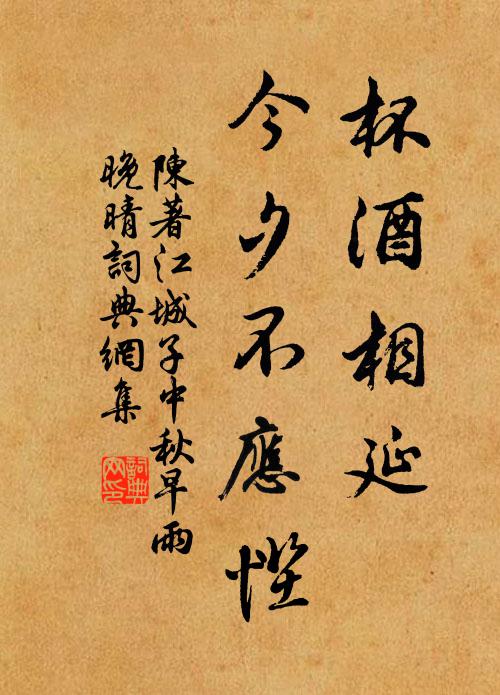 杯酒相延
今夕不應慳
陳著江城子中秋早雨
晚晴詞典網集
詞典网印